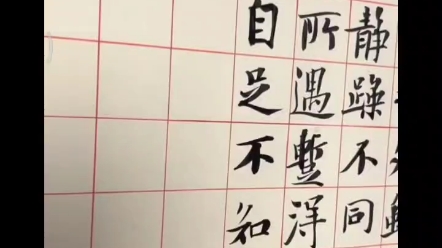 静躁不同
所遇暫得
自足不知